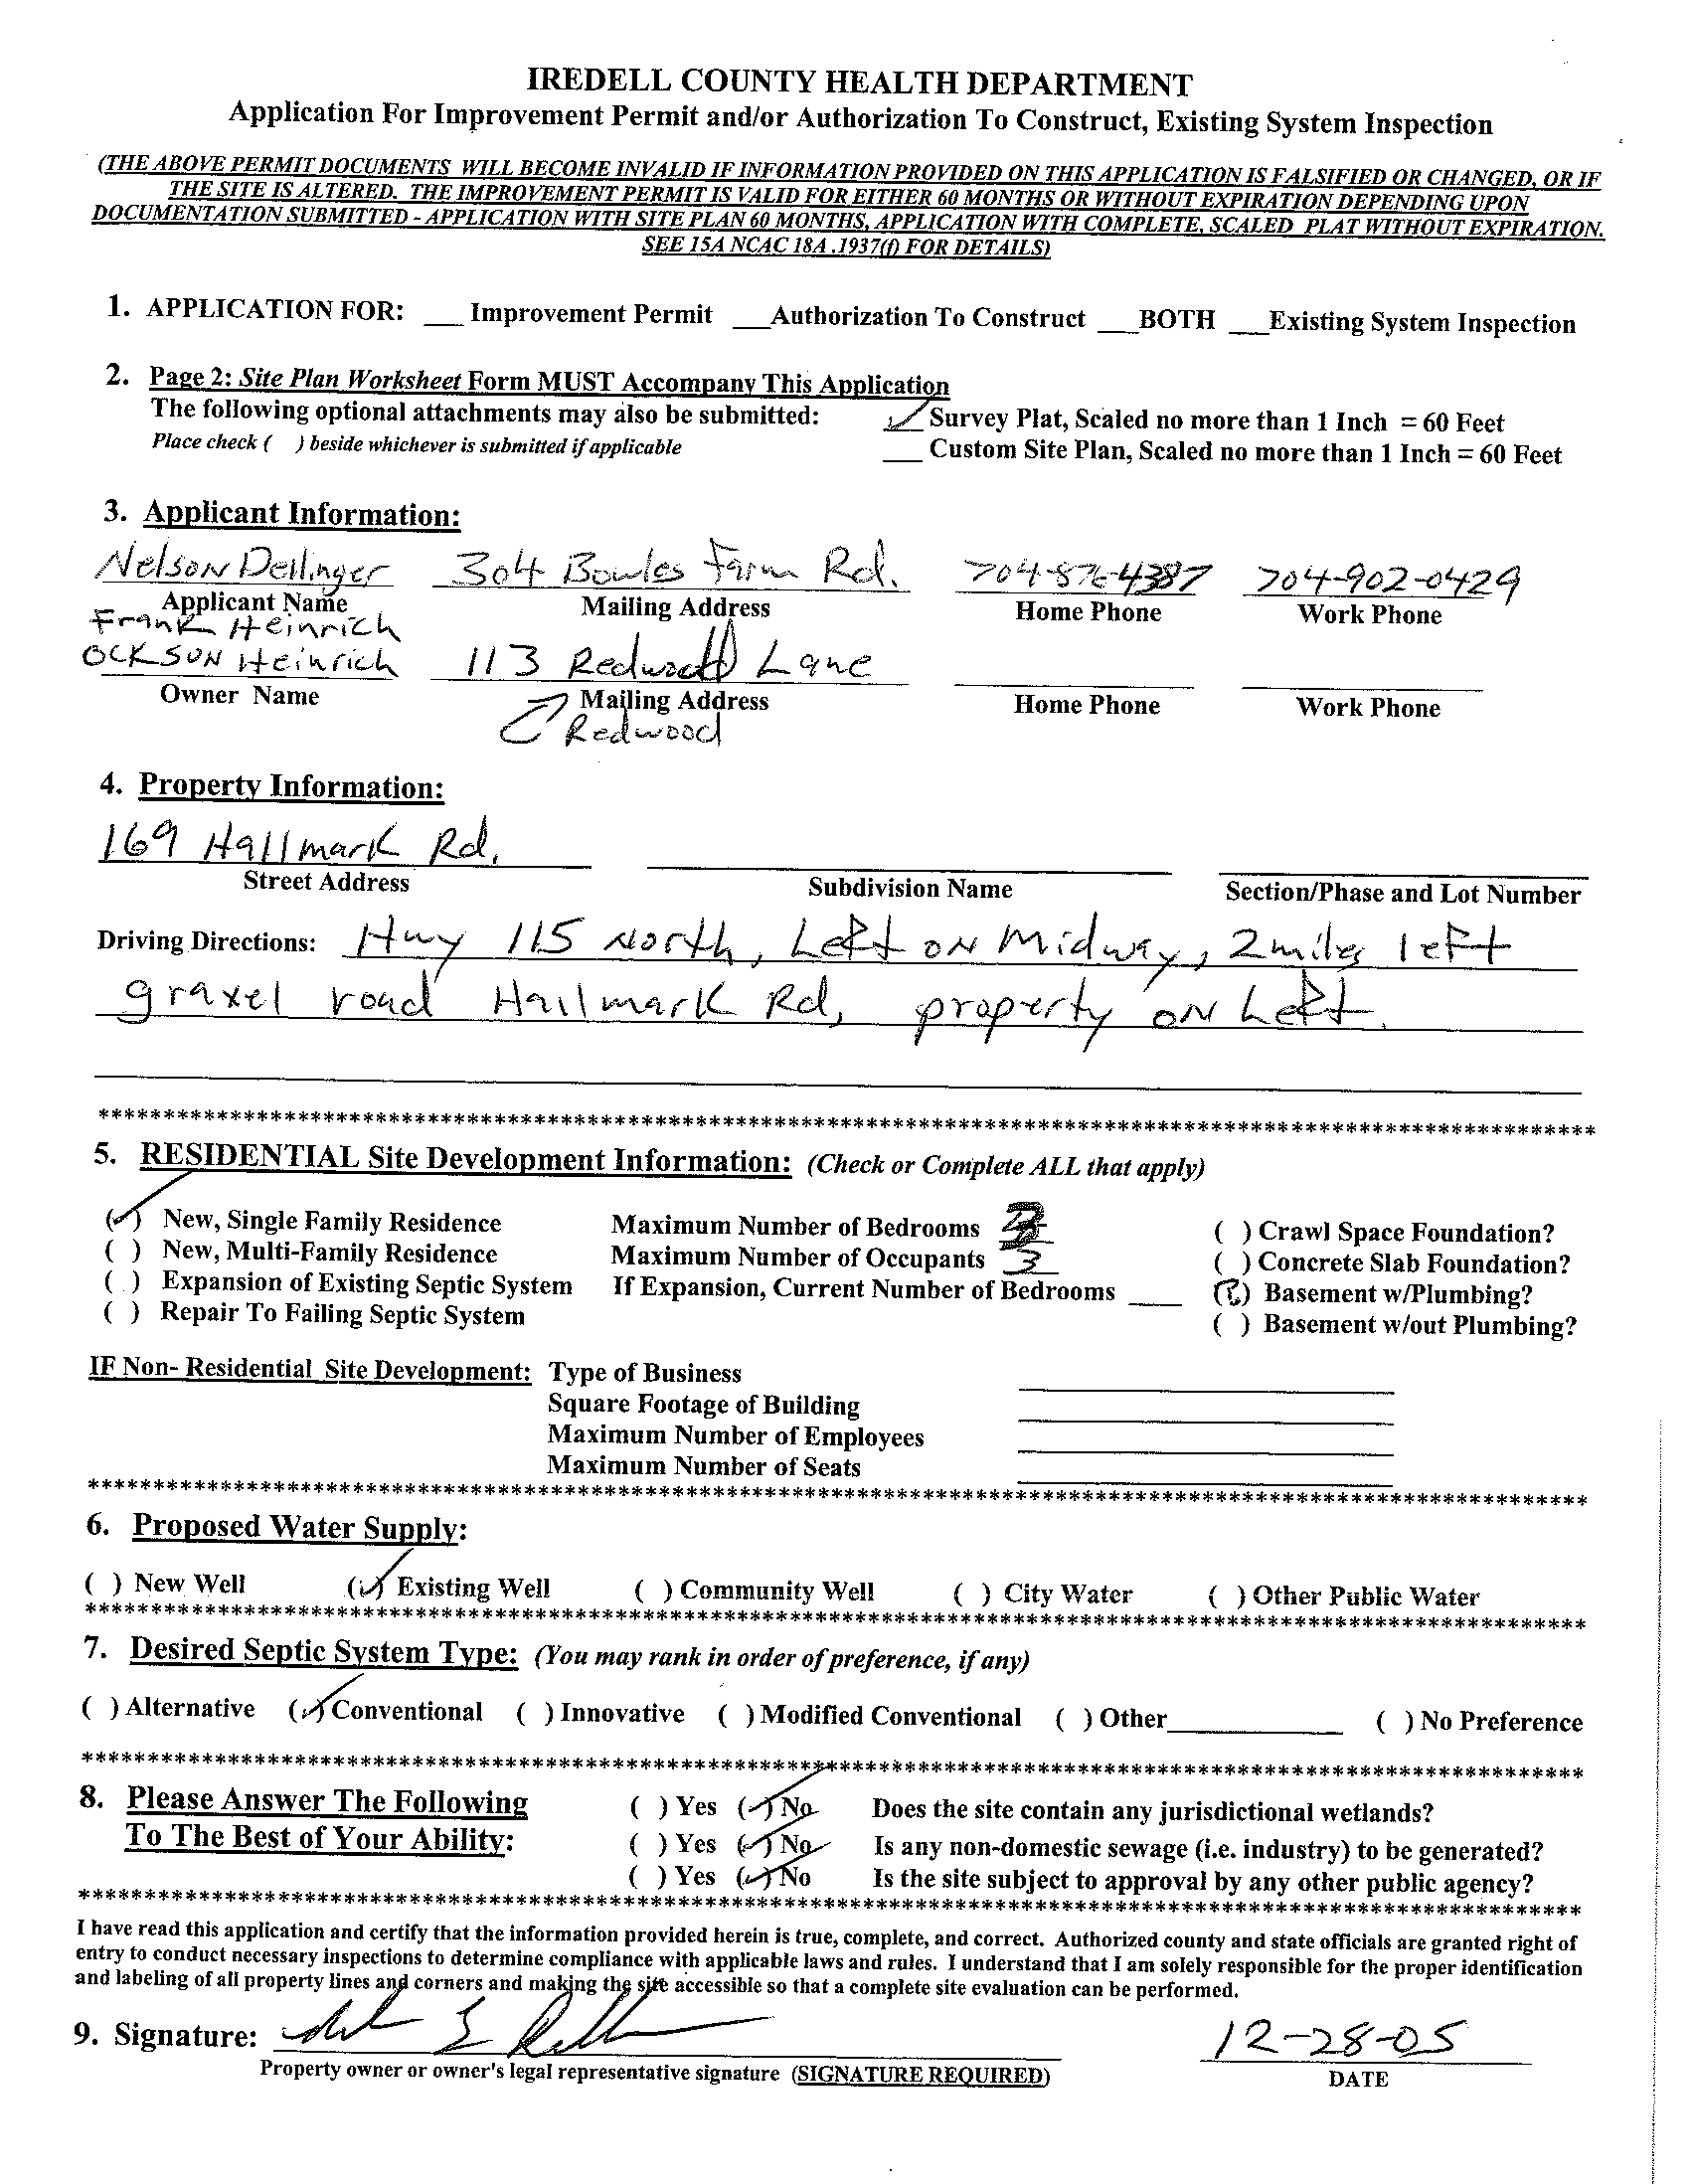 IREDELL COUNTY HEALTH DEPARTMENT
Application For Improvement Permit and/or Authorization To Construct, Existing System Inspection
(THE ABOVE PERMIT DOCUMENTS WILL BECOME INVALID IF INFORMATION PROVIDED ON THIS APPLICATION IS FALSIFIED OR CHANGED, OR IF
THE SITE IS ALTERED. THE IMPROVEMENT PERMIT IS VALID FOR EITHER 60 MONTHS OR WITHOUT EXPIRATION DEPENDING UPON
DOCUMENTATION SUBMITTED - APPLICATION WITH SITE PLAN 60 MONTHS, APPLICATION WITH COMPLETE, SCALED PLAT WITHOUT EXPIRATION.
SEE 15A NCAC 18A .1937(f) FOR DETAILS)
1. APPLICATION FOR: ___ Improvement Permit ___Authorization To Construct ___BOTH ___Existing System Inspection
2. Page 2: Site Plan Worksheet Form MUST Accompany This Application
The following optional attachments may also be submitted: ✓ Survey Plat, Scaled no more than 1 Inch = 60 Feet
Place check ( ) beside whichever is submitted if applicable ___ Custom Site Plan, Scaled no more than 1 Inch = 60 Feet
3. Applicant Information:
Nelson Dellinger 304 Bowles Farm Rd. 704-876-4387 704-902-0429
Applicant Name Mailing Address Home Phone Work Phone
Frank Heinrich
OCKSUN Heinrich 113 Redwood Lane
Owner Name Mailing Address Home Phone Work Phone
Redwood
4. Property Information:
169 Hallmark Rd.
Street Address Subdivision Name Section/Phase and Lot Number
Driving Directions: Hwy 115 North, Left on Midway, 2 miles left
gravel road Hallmark Rd, property on Left.
5. RESIDENTIAL Site Development Information: (Check or Complete ALL that apply)
(✓) New, Single Family Residence Maximum Number of Bedrooms ( ) Crawl Space Foundation?
( ) New, Multi-Family Residence Maximum Number of Occupants 3 ( ) Concrete Slab Foundation?
( ) Expansion of Existing Septic System If Expansion, Current Number of Bedrooms ____ ( ) Basement w/Plumbing?
( ) Repair To Failing Septic System ( ) Basement w/out Plumbing?
IF Non- Residential Site Development: Type of Business
Square Footage of Building
Maximum Number of Employees
Maximum Number of Seats
6. Proposed Water Supply:
( ) New Well (✓) Existing Well ( ) Community Well ( ) City Water ( ) Other Public Water
7. Desired Septic System Type: (You may rank in order of preference, if any)
( ) Alternative (✓) Conventional ( ) Innovative ( ) Modified Conventional ( ) Other____________ ( ) No Preference
8. Please Answer The Following ( ) Yes (✓) No Does the site contain any jurisdictional wetlands?
To The Best of Your Ability: ( ) Yes (✓) No Is any non-domestic sewage (i.e. industry) to be generated?
( ) Yes (✓) No Is the site subject to approval by any other public agency?
I have read this application and certify that the information provided herein is true, complete, and correct. Authorized county and state officials are granted right of
entry to conduct necessary inspections to determine compliance with applicable laws and rules. I understand that I am solely responsible for the proper identification
and labeling of all property lines and corners and making the site accessible so that a complete site evaluation can be performed.
9. Signature: 12-28-05
Property owner or owner's legal representative signature (SIGNATURE REQUIRED) DATE